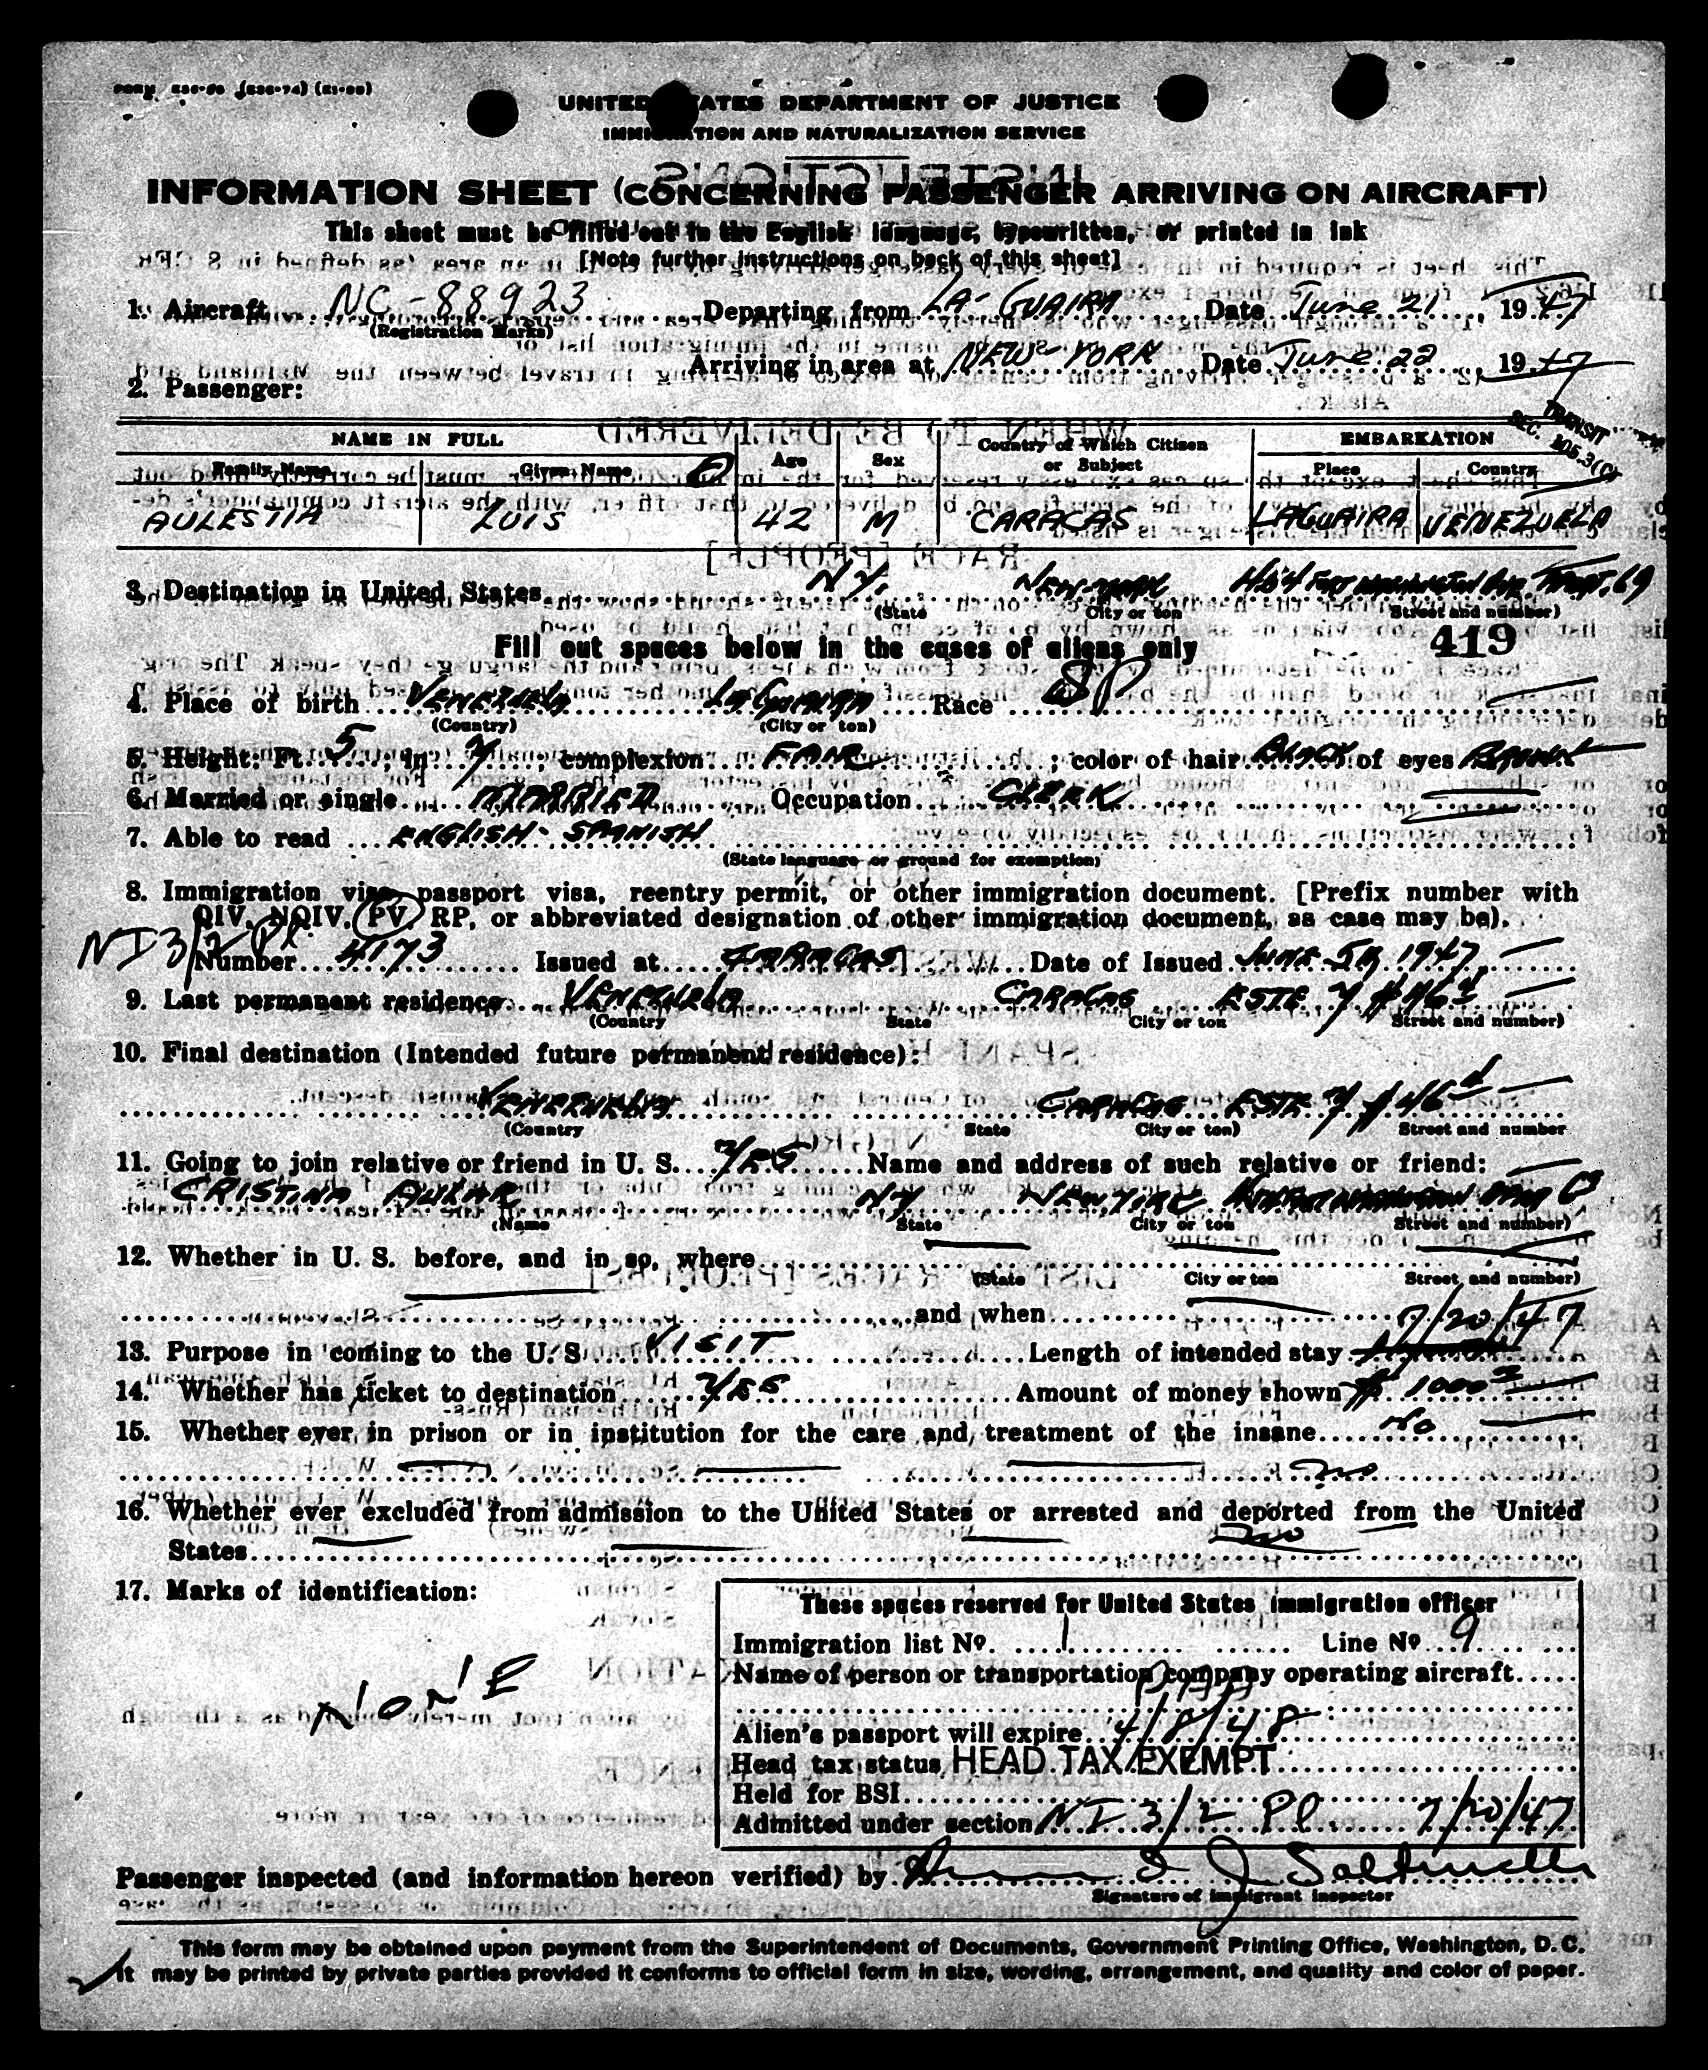 FORM
UNITED STATES DEPARTMENT OF JUSTICE
IMMIGRATION AND NATURALIZATION SERVICE
INFORMATION SHEET (CONCERNING PASSENGER ARRIVING ON AIRCRAFT)
This sheet must be filled out in the English language, typewritten, or printed in ink
[Note further instructions on back of this sheet]
1. Aircraft NC-88923 Departing from LA-GUAIRA Date June 21, 1947
(Registration Marks)
Arriving in area at NEW-YORK Date June 22, 1947
2. Passenger:
TRANSIT
SEC. 105.3(C)
NAME IN FULL Age Sex Country of Which Citizen or Subject EMBARKATION
Family Name Given Name Place Country
AULESTIA LUIS 42 M CARACAS LAGUAIRA VENEZUELA
3. Destination in United States N.Y. NEW-YORK
(State City or ton Street and number)
Fill out spaces below in the cases of aliens only 419
4. Place of birth VENEZUELA LA GUAIRA Race SP
(Country) (City or ton)
5. Height: Ft. 5; in 7; complexion FAIR; color of hair BLACK of eyes BROWN
6. Married or single MARRIED Occupation CLERK
7. Able to read ENGLISH - SPANISH
(State language or ground for exemption;
8. Immigration visa, passport visa, reentry permit, or other immigration document. [Prefix number with
QIV, NQIV, PV, RP, or abbreviated designation of other immigration document, as case may be).
NI 3/2 Pl.
Number 4173 Issued at CARACAS Date of Issued JUNE 1947
9. Last permanent residence VENEZUELA CARACAS ESTE
(Country State City or ton Street and number)
10. Final destination (Intended future permanent residence):
VENEZUELA CARACAS ESTE
(Country State City or ton) Street and number
11. Going to join relative or friend in U. S. YES Name and address of such relative or friend:
CRISTINA NY NEW YORK
(Name State City or ton Street and number)
12. Whether in U. S. before, and in so, where
(State City or ton Street and number)
and when
7/20/47
13. Purpose in coming to the U. S VISIT Length of intended stay
14. Whether has ticket to destination YES Amount of money shown $ 1000
15. Whether ever in prison or in institution for the care and treatment of the insane No
no
16. Whether ever excluded from admission to the United States or arrested and deported from the United
States no
17. Marks of identification:
NONE
These spaces reserved for United States immigration officer
Immigration list No. 1 Line No 9
Name of person or transportation company operating aircraft
PAA
Alien's passport will expire 4/8/48
Head tax status HEAD TAX EXEMPT
Held for BSI
Admitted under section NI 3/2 Pl. 7/20/47
Passenger inspected (and information hereon verified) by
Signature of immigrant inspector
This form may be obtained upon payment from the Superintendent of Documents, Government Printing Office, Washington, D. C.
It may be printed by private parties provided it conforms to official form in size, wording, arrangement, and quality and color of paper.